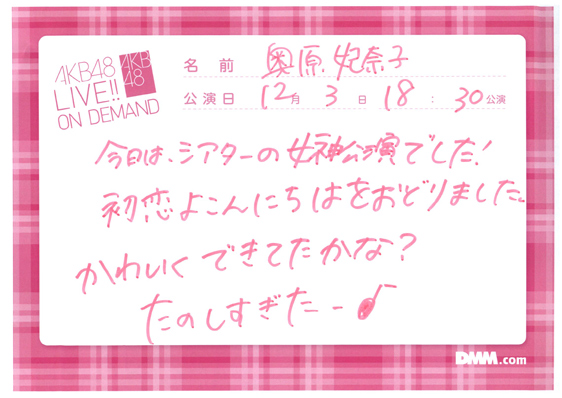 AKB48
LIVE!!
ON DEMAND
AKB
48
名前 奥原妃奈子
公演日 12月 3日 18:30公演
今日は、シアターの女神公演でした!
初恋よこんにちはをおどりました。
かわいくできてたかな?
たのしすぎたー♪
DMM.com